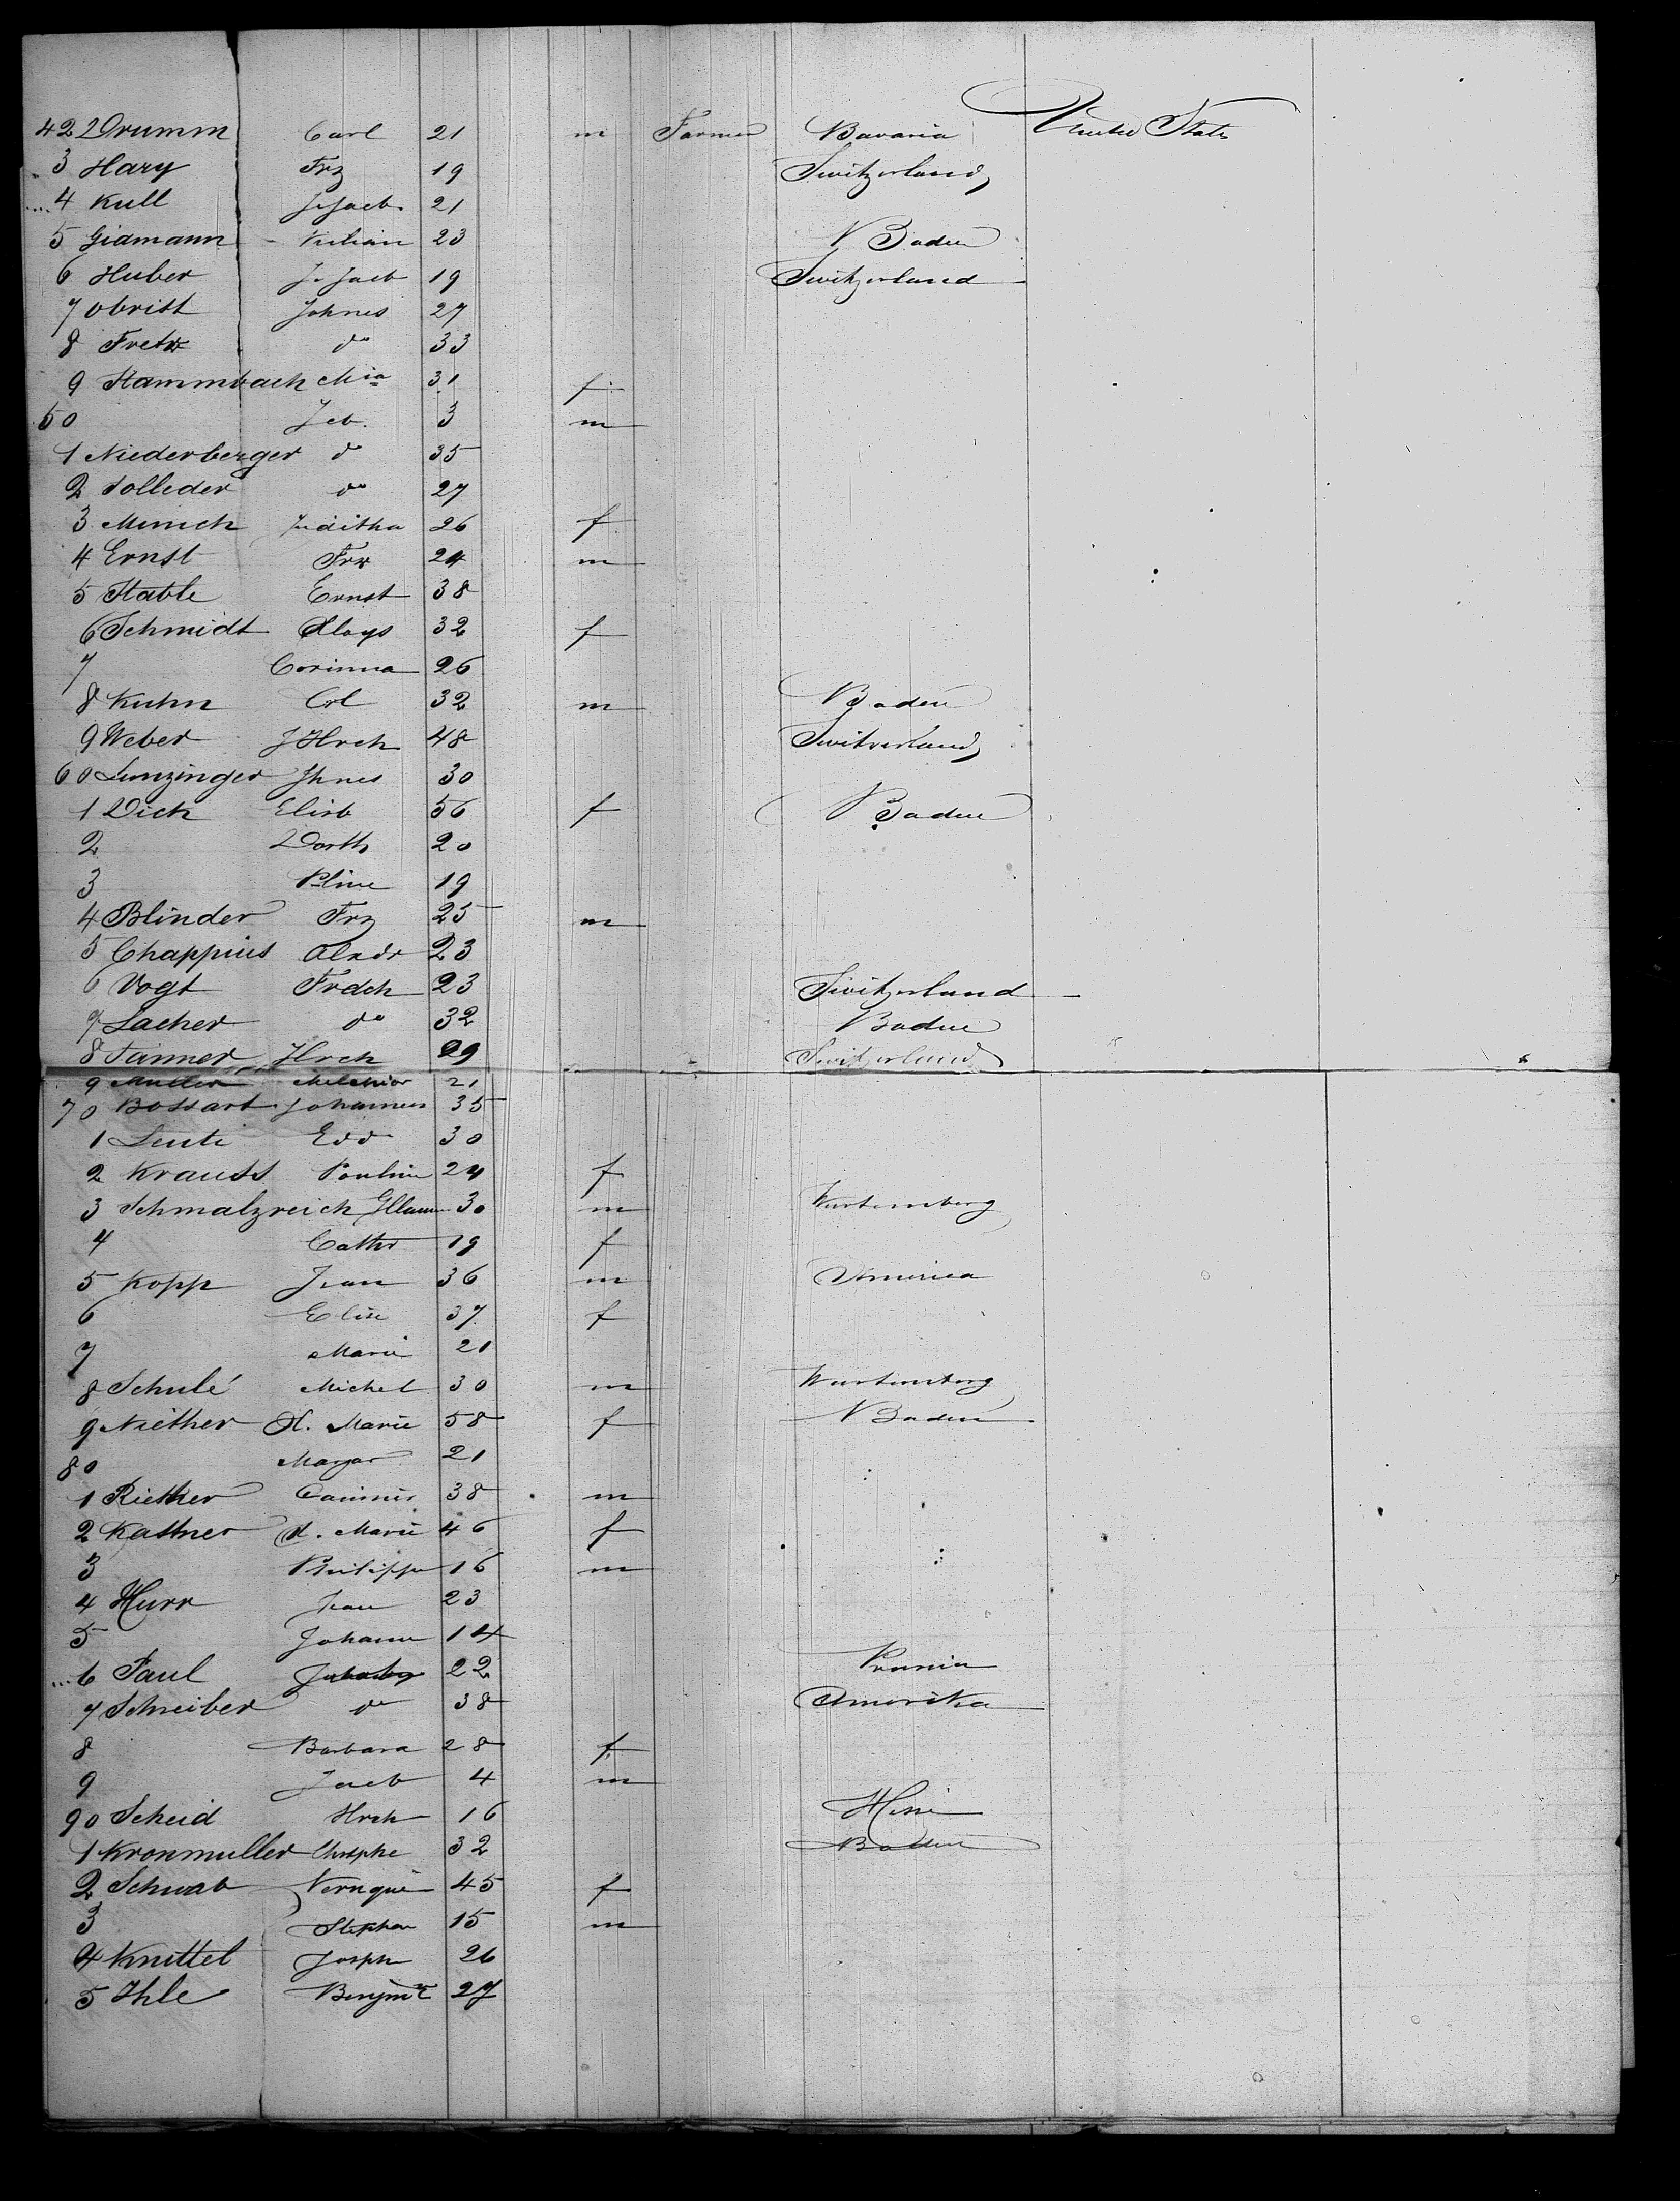 42 Drumm Carl 21 m Farmer Bavaria United States
3 Hary Frz 19 Switzerland
4 Kull J. Jacb. 21
5 Gidmann 23 Baden
6 Huber J. Jacb 19 Switzerland
7 Obrist Johnes 27
8 Fretz do 33
9 Stammbach Mia 31 f
50 Jcb. 3 m
1 Niederberger do 35
2 Solleder do 27
3 Munch Juditha 26 f
4 Ernst Frz 24 m
5 Stable Ernst 38
6 Schmidt Aloys 32 f
7 Corinna 26
8 Kuhn Crl 32 m Baden
9 Weber J Hrch 48 Switzerland
60 Lunzinger Jhnes 30
1 Dick Elisb 56 f Baden
2 Doroth 20
3 Pline 19
4 Blinder Frz 25 m
5 Chappuis Alxdr 23
6 Vogt Frdch 23 Switzerland
7 Lacher do 32 Baden
8 Tanner Hrch 29 Switzerland
9 Muller Melchior 21
70 Bossart Johannes 35
1 Leuti Edd 30
2 Krauss Pauline 24 f
3 Schmalzreich 30 m Wurtemberg
4 Cathr 19 f
5 Kopp Jean 36 m America
6 Elise 37 f
7 Marie 21
8 Schulé Michel 30 m Wurtemberg
9 Niether A. Marie 58 f Baden
80 Margar 21
1 Riether Casimir 38 m
2 Kastner A. Marie 46 f
3 Philippe 16 m
4 Hurr Jean 23
5 Johann 14
6 Paul 22 Prussia
7 Schreiber do 38 Amerika
8 Barbara 28 f
9 Jacb 4 m
90 Scheid Hrch 16 Hesse
1 Kronmuller Chrsphe 32 Baden
2 Schwab Vernque 45 f
3 Stephan 15 m
4 Knittel Joseph 26
5 Ihle Benjmt 27